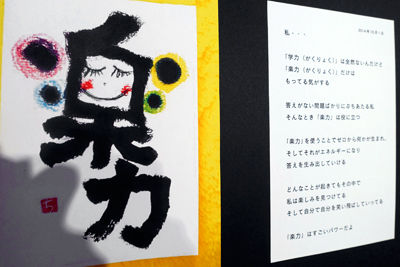 楽力
私・・・
「学力（がくりょく）」は全然ないんだけど
「楽力（がくりょく）」だけは
もってる気がする
答えがない問題ばかりにぶちあたる私
そんなとき「楽力」は役に立つ
「楽力」を使うことでゼロから何かが生まれ、
そしてそれがエネルギーになり
答えを生み出していける
どんなことが起きてもその中で
私は楽しみを見つけてる
そして自分で自分を笑い飛ばしていってる
「楽力」はすごいパワーだよ